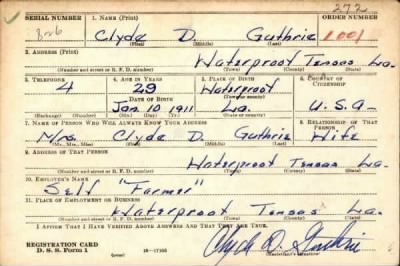 272
SERIAL NUMBER 1. NAME (Print) ORDER NUMBER
826 Clyde D. Guthrie 1001
(First) (Middle) (Last)
2. ADDRESS (Print)
Waterproof Tensas La.
(Number and street or R. F. D. number) (Town) (County) (State)
3. TELEPHONE 4. AGE IN YEARS 5. PLACE OF BIRTH 6. COUNTRY OF CITIZENSHIP
4 29 Waterproof
DATE OF BIRTH (Town or county)
Jan 10 1911 La. U.S.A.
(Exchange) (Number) (Mo.) (Day) (Yr.) (State or country)
7. NAME OF PERSON WHO WILL ALWAYS KNOW YOUR ADDRESS 8. RELATIONSHIP OF THAT PERSON
Mrs. Clyde D. Guthrie Wife
(Mr., Mrs., Miss) (First) (Middle) (Last)
9. ADDRESS OF THAT PERSON
Waterproof Tensas La.
(Number and street or R. F. D. number) (Town) (County) (State)
10. EMPLOYER'S NAME
Self "Farmer"
11. PLACE OF EMPLOYMENT OR BUSINESS
Waterproof Tensas La.
(Number and street or R. F. D. number) (Town) (County) (State)
I AFFIRM THAT I HAVE VERIFIED ABOVE ANSWERS AND THAT THEY ARE TRUE.
REGISTRATION CARD
D. S. S. Form 1 16-17105 Clyde D. Guthrie
(Registrant's signature)